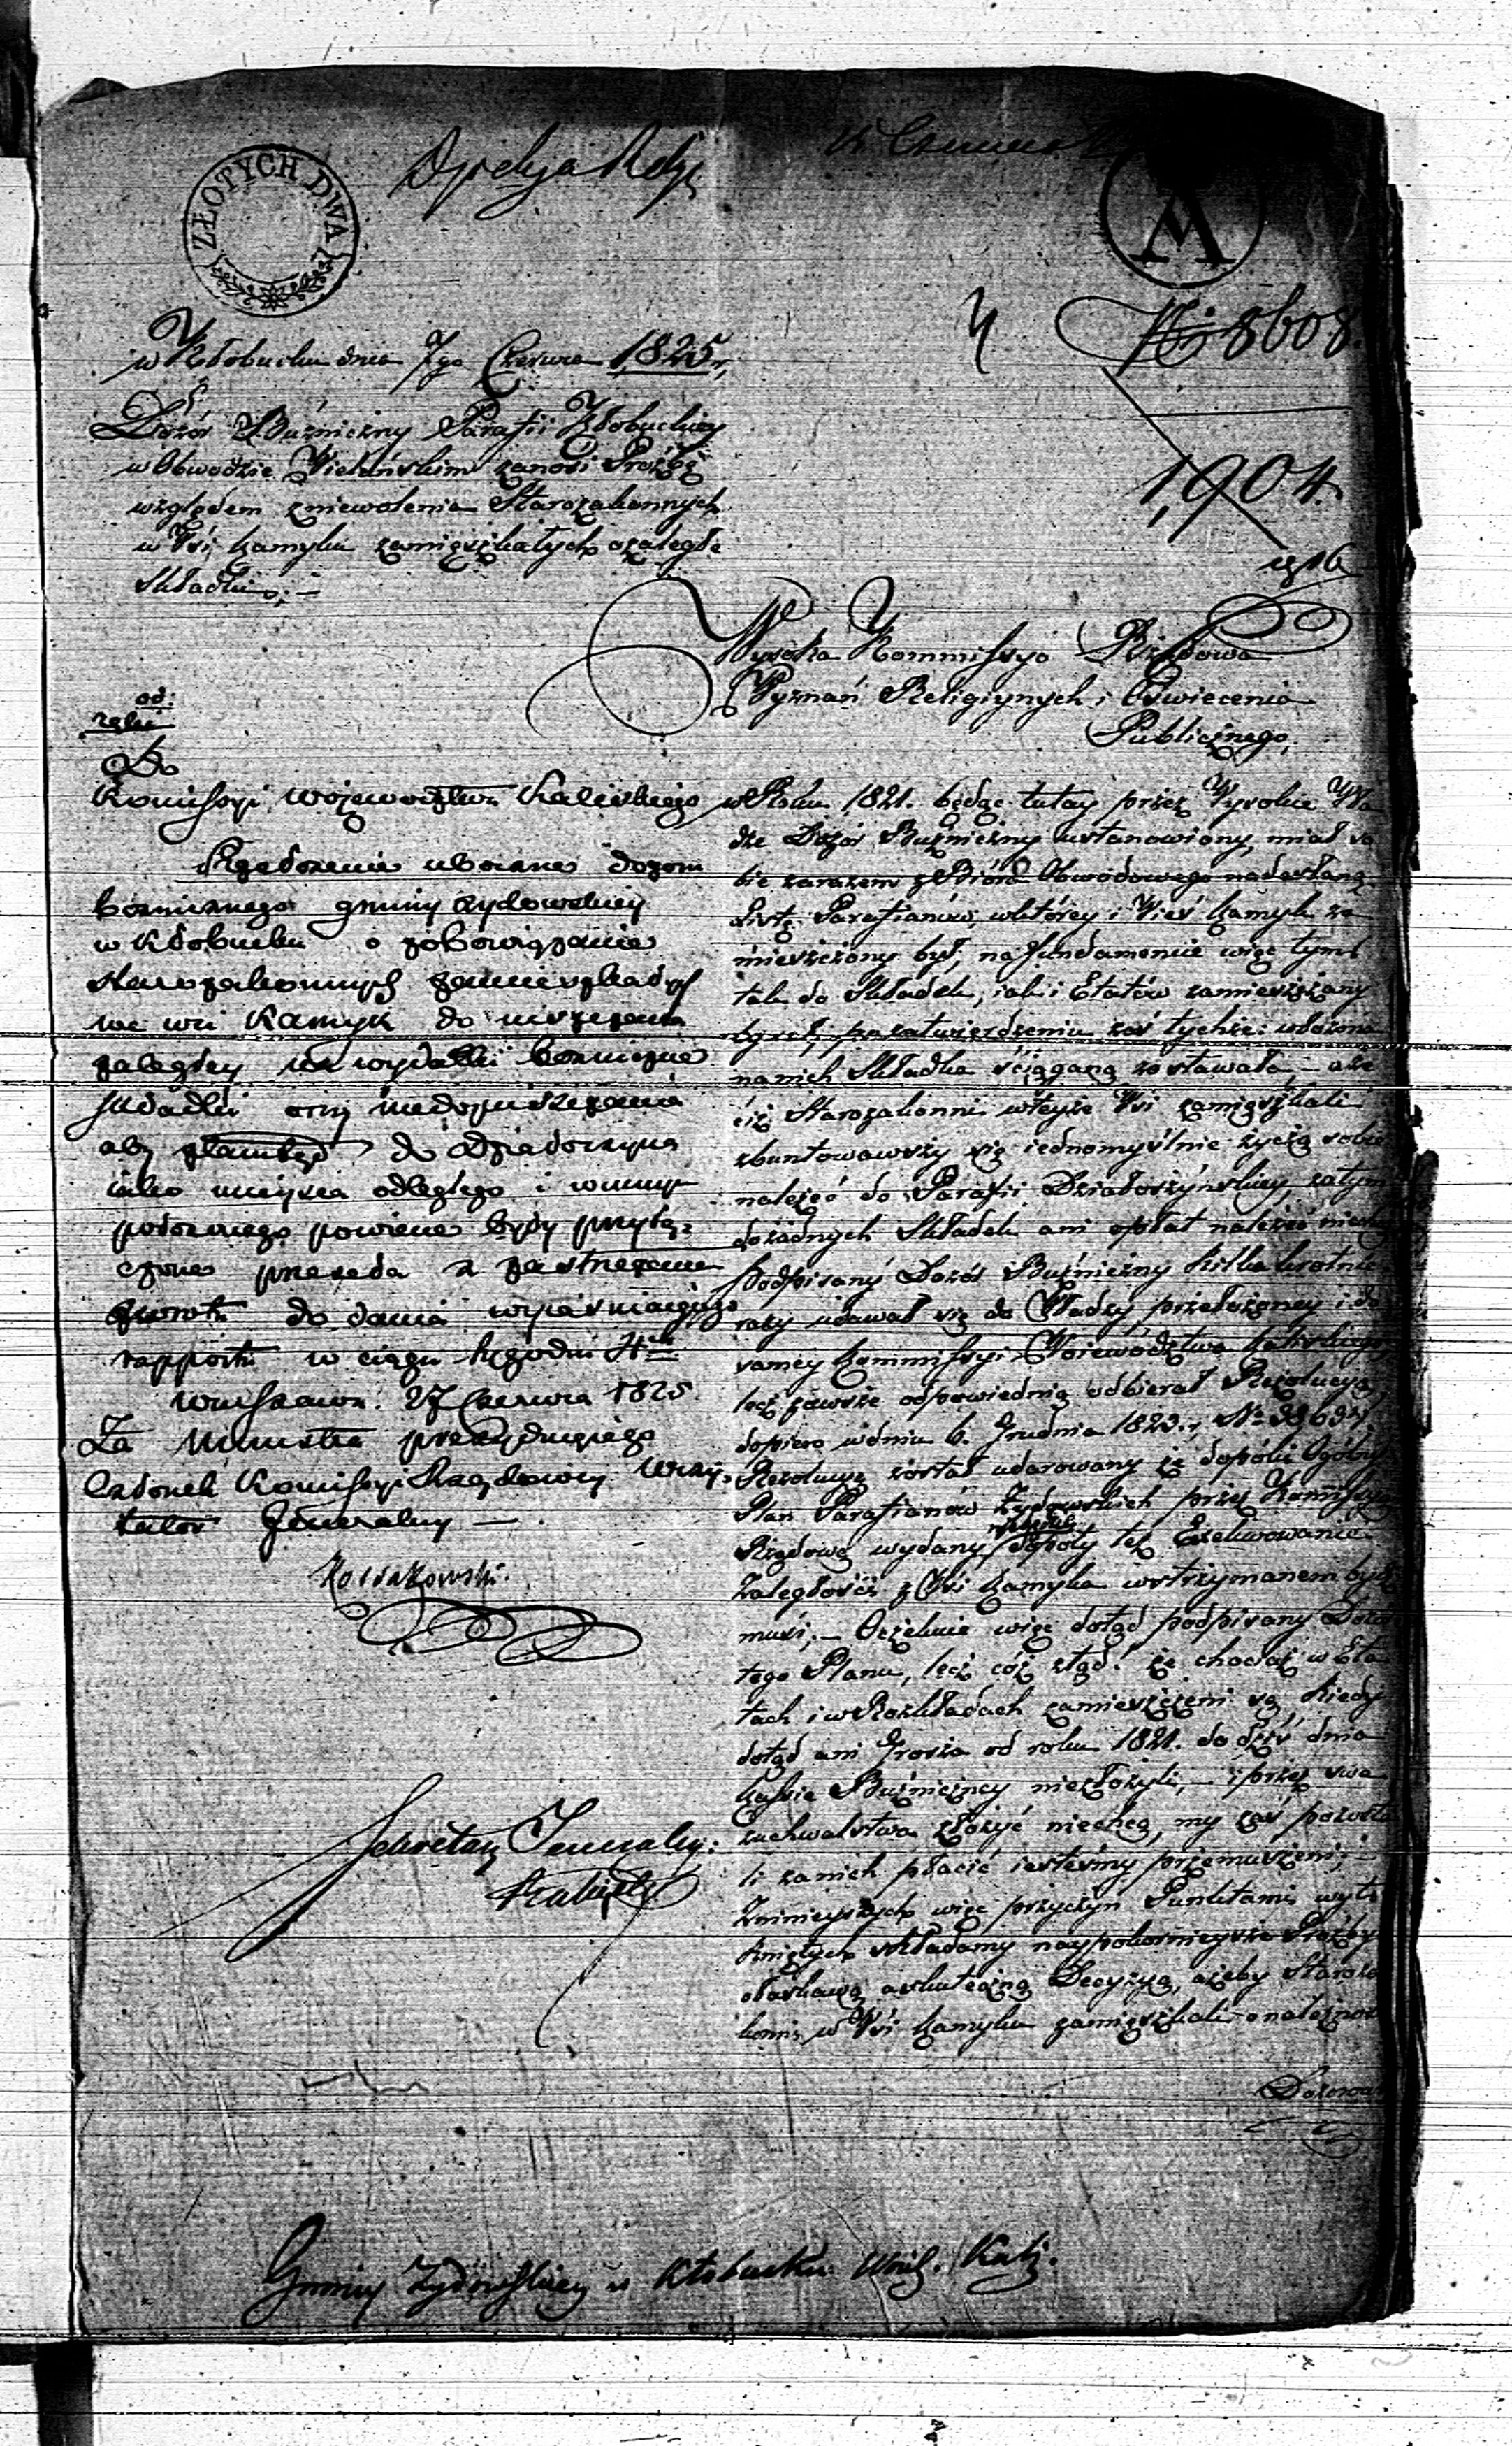 ZŁOTYCH DWA
№ 8608.
w Kłobucku dnia 7go Czerwca 1825 r.
1,904.
Dozór Bużniczny Parafii Kłobuckiey
w Obwodzie Wieluńskim zanosi Proźbę
względem zniewolenia Starozakonnych
w Wsi Kamyku zamięszkałych o zaległe
Składki;—
Wysoka Kommissyo Rządowa
Wyznań Religiynych i Oświecenia
Publicznego,
Do
Komissyi Województwa Kaliskiego
dozoru
bożniczego gminy żydowskiey
w Kłobucku o zobowiązanie
starozakonnych zamieszkałych
we wsi Kamyk do uiszczenia
zaległey na wydatki bożniczne
składki oraz niedopuszczenia
aby do Działoszyna
iako mieysca odległego i w innym
położonego powiecie byli przyłą-
czone przeseła z zastrzeżeniem
zwrotu do dania wyiaśniaiącego
rapportu w ciągu tygodni 4ch
Warszawa. 27 Czerwca 1825.
Za Ministra prezyduiącego
Członek Komissyi Rządowey Wizy-
tator Generalny —
w Roku 1821. będąc tutay przez Wysokie Wła
dze Dozór Bużniczny ustanowiony, miał so
bie zarazem z Bióra Obwodowego nadesłaną
Listę Parafianów, w którey i Wieś Kamyk za
mieszczony był, na fundamencie więc tym
tak do Składek, iak i Etatów zamieszczany
był, po zatwierdzeniu zaś tychże: włożona
na nich Składka ściąganą zostawała,— ale
ciż Starozakonni w teyże Wsi zamięszkali
zbuntowawszy się iednomyślnie życzą sobie
należeć do Parafii Działoszyńskiey, zatym
do żadnych Składek ani opłat należeć niechcą
Podpisany Dozór Bużniczny kilkakrotnie
razy udawał się do Władzy przełożoney i do
samey Kommissyi Województwa Kaliskiego
lecz zawsze odpowiednią odbierał Rezolucyą,
dopiero w dniu 6. Grudnia 1823. r.
Rezolucyą został udarowany że dopóki Ogólny
Plan Parafianów Żydowskich przez Kommissyą
Rządową wydany dopóty też Exekwowanie
Zaległości z Wsi Kamyka wstrzymanem być
musi;— Oczekuie więc dotąd podpisany Dozór
tego Planu, lecz cóż ztąd! że chociaż w Eta
tach i w Rozkładach zamieszczeni są, kiedy
dotąd ani Grosza od roku 1821. do dziś dnia
Kassie Bużniczney niezłożyli,— i przez swe
zuchwalstwa złożyć niechcą, my zaś pozosta
li za nich płacić iesteśmy przymuszeni;—
Z ninieyszych więc przyczyn Punktami wyty
kniętych składamy naypokornieysze Prożby
o łaskawą a skuteczną Decyzyą, ażeby Staroza
konni w Wsi Kamyku zamięszkali
Sekretarz Generalny:
Gminy Żydowskiey w Kłobucku Woj. Kali.